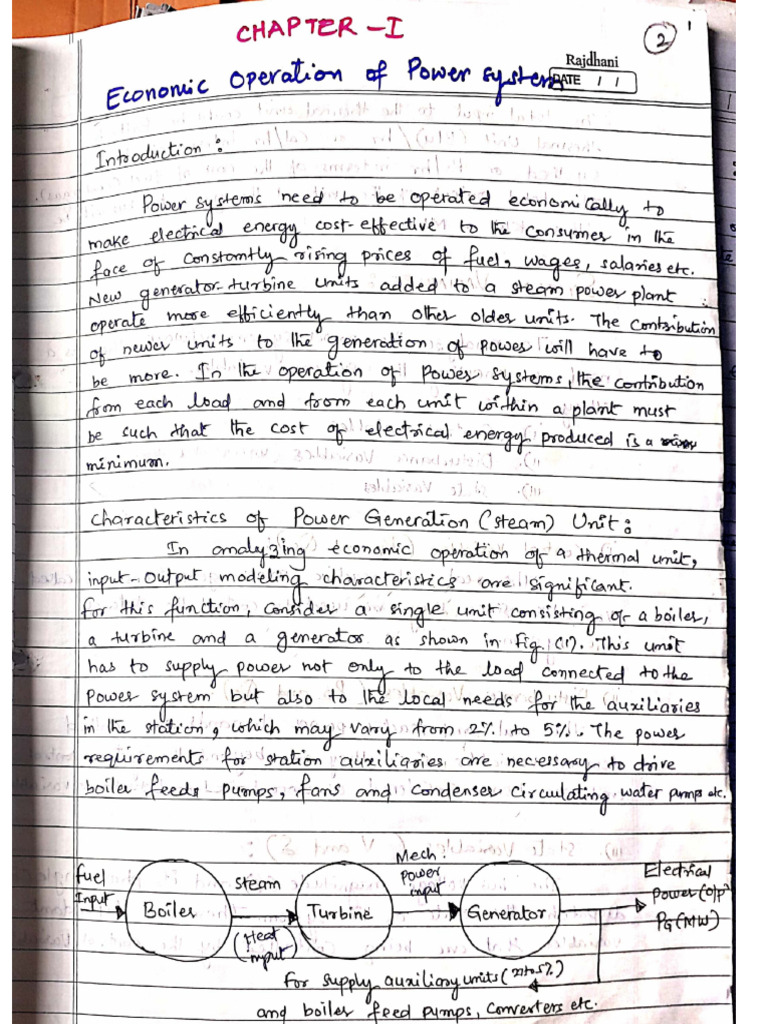 CHAPTER - I
2
1
Rajdhani
DATE / /
Economic Operation of Power system
Introduction :
Power systems need to be operated economically to
make electrical energy cost-effective to the consumer in the
face of constantly rising prices of fuel, wages, salaries etc.
New generator-turbine units added to a steam power plant
operate more efficiently than other older units. The contribution
of newer units to the generation of power will have to
be more. In the operation of power systems, the contribution
from each load and from each unit within a plant must
be such that the cost of electrical energy produced is a
minimum.
Characteristics of Power Generation (steam) Unit :
In analyzing economic operation of a thermal unit,
input-output modeling characteristics are significant.
for this function, consider a single unit consisting of a boiler,
a turbine and a generator as shown in fig (1). This unit
has to supply power not only to the load connected to the
power system but also to the local needs for the auxiliaries
in the station, which may vary from 2% to 5%. The power
requirements for station auxiliaries are necessary to drive
boiler feeds pumps, fans and condenser circulating water pumps etc.
fuel Input
Boiler
steam
(Heat input)
Turbine
Mech. power input
Generator
Electrical
Power (O/P)
PG (MW)
for supply auxiliary units (2 to 5%)
and boiler feed pumps, converters etc.